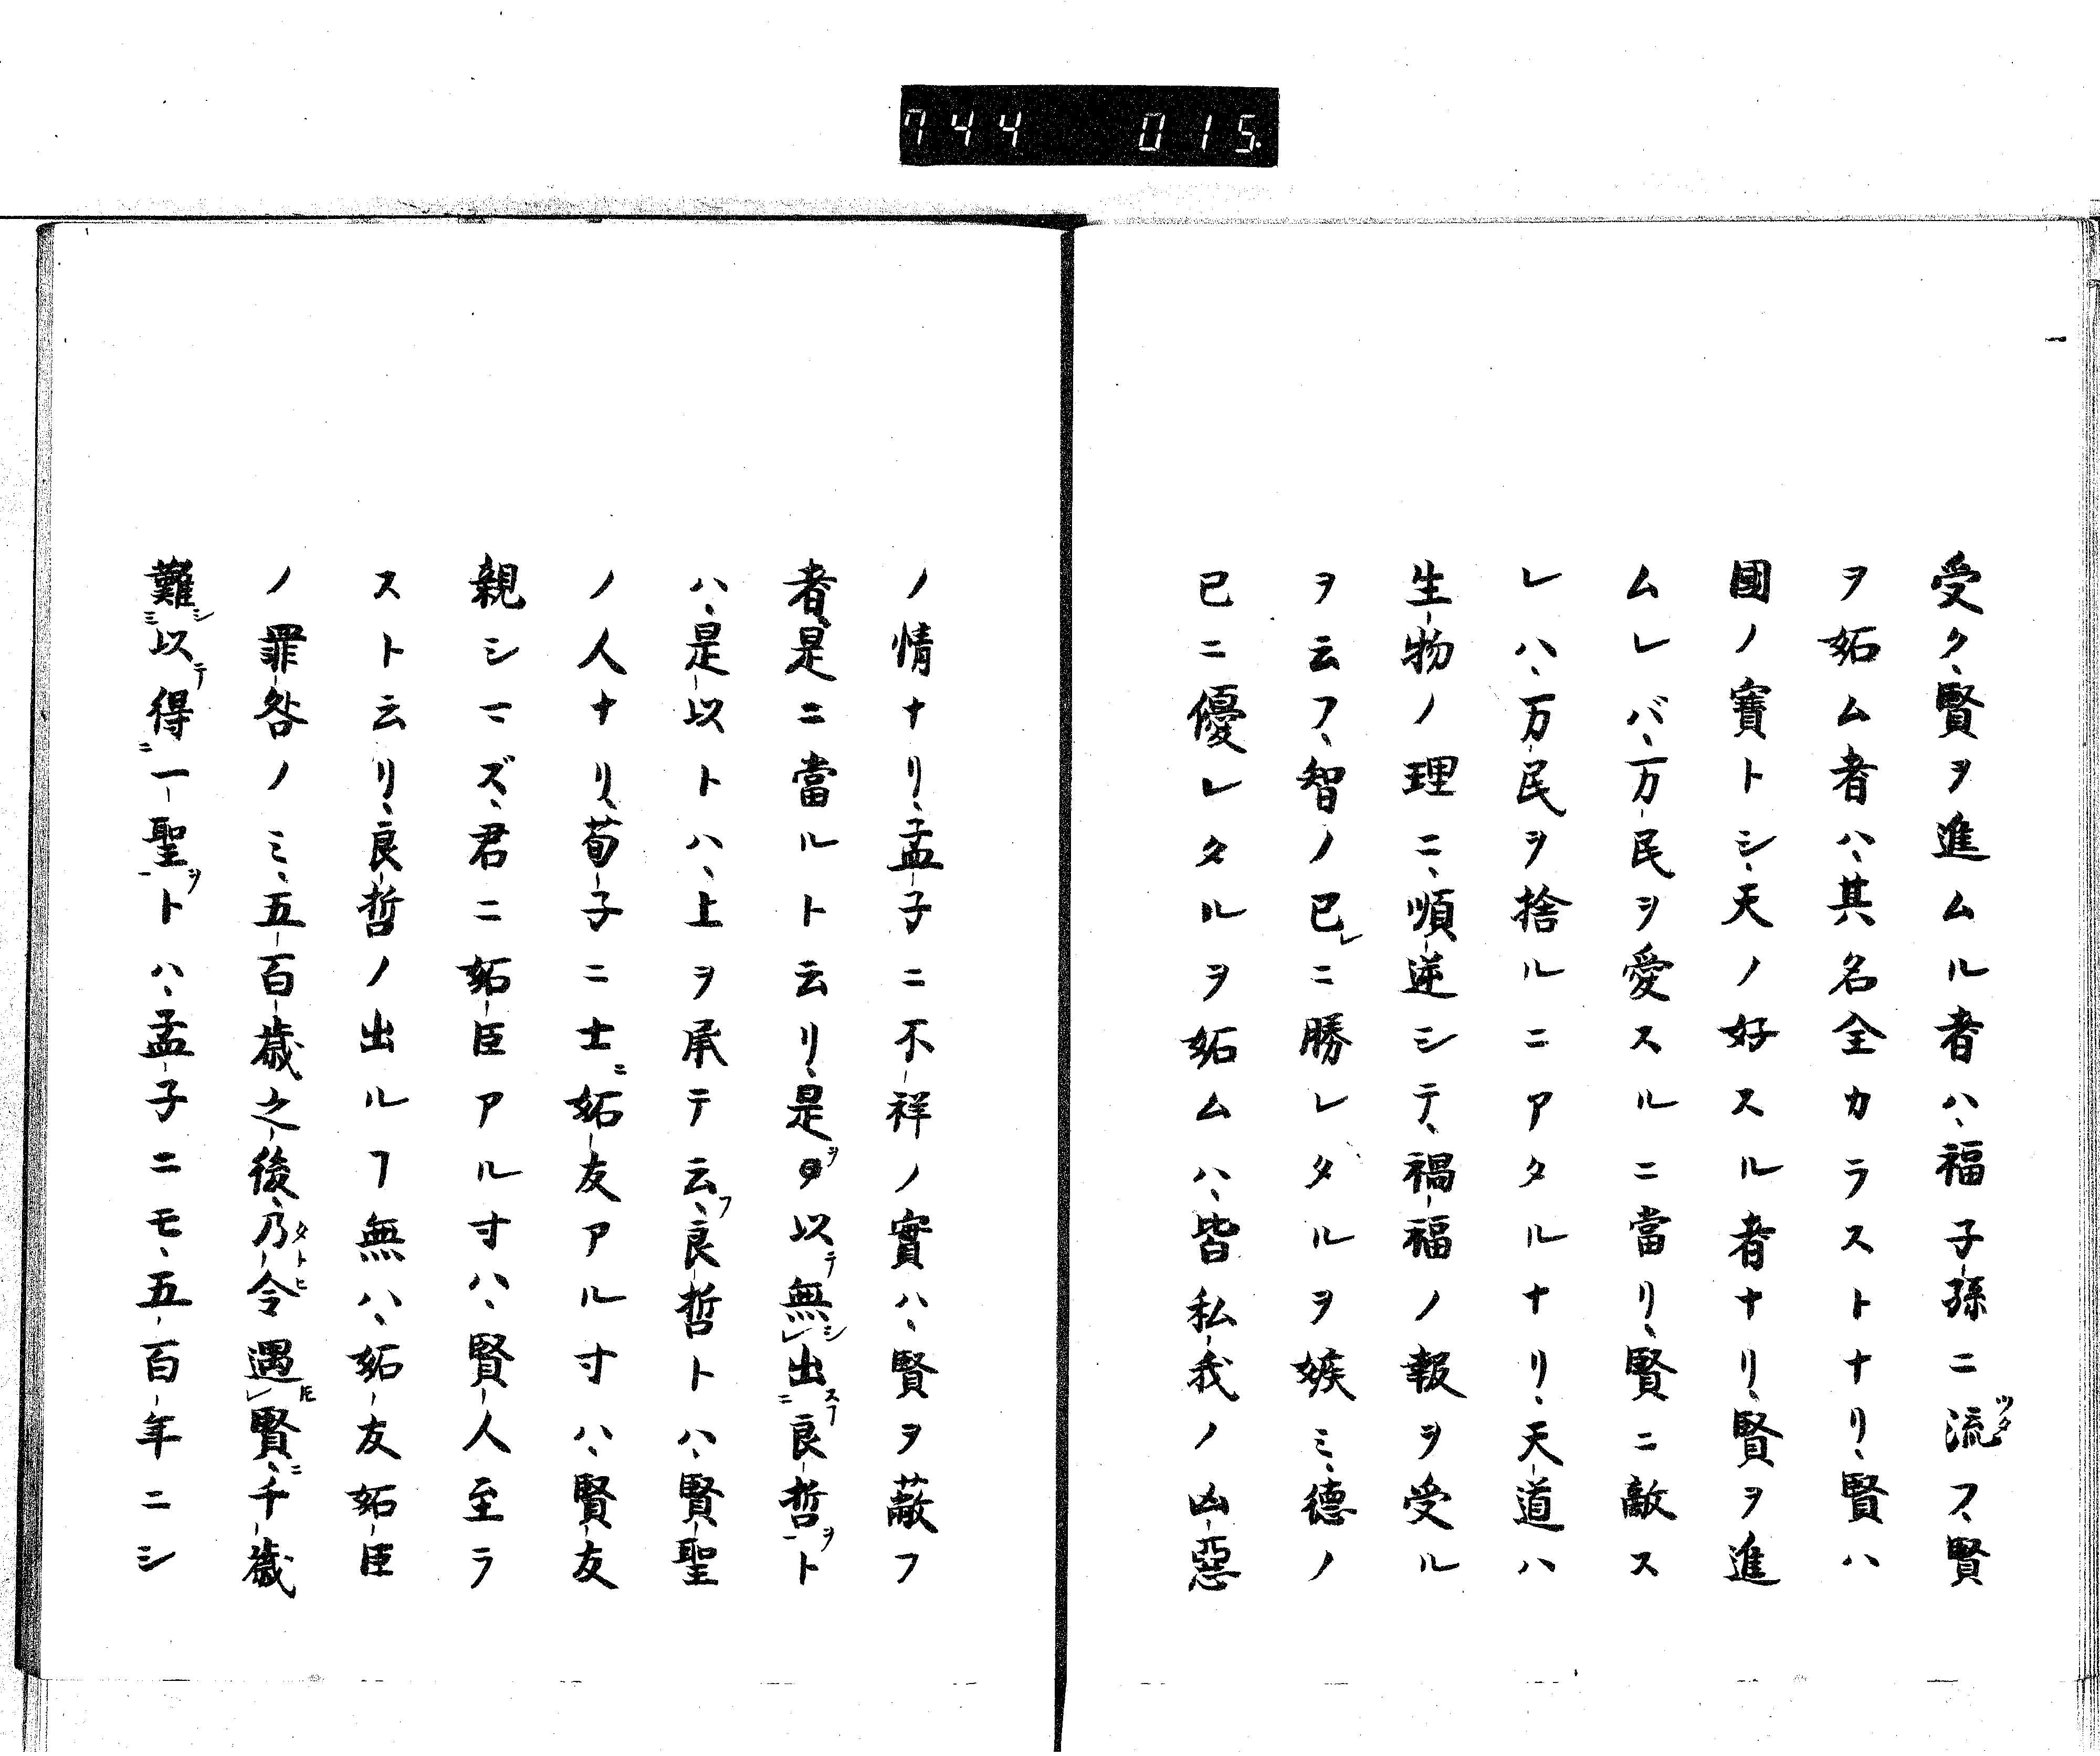 744 015
受ク、賢ヲ進ムル者ハ、福子孫ニ流フ、賢
ヲ妬ム者ハ、其名全カラストナリ、賢ハ
國ノ寶トシ、天ノ好スル者ナリ、賢ヲ進
ムレバ、万民ヲ愛スルニ當リ、賢ニ敵ス
レハ、万民ヲ捨ルニアタルナリ、天道ハ
生物ノ理ニ、順逆シテ、禍福ノ報ヲ受ル
ヲ云フ、智ノ已レニ勝レタルヲ嫉ミ、德ノ
已ニ優レタルヲ妬ムハ、皆私我ノ凶惡
ノ情ナリ、孟子ニ不祥ノ實ハ、賢ヲ蔽フ
者、是ニ當ルト云リ、是ヲ以テ無シレ出スヿ二良哲ヲ一ト
ハ、是以トハ、上ヲ承テ云フ、良哲トハ、賢聖
ノ人ナリ、荀子ニ士ニ妬友アル寸ハ、賢友
親シマズ、君ニ妬臣アル寸ハ、賢人至ラ
スト云リ、良哲ノ出ルヿ無ハ、妬友妬臣
ノ罪咎ノミ、五百歳之後、乃令タトヒ遇トモレ賢ニ、千歳
難シミ以テ得ニ一聖ヲ一トハ、孟子ニモ、五百年ニシ